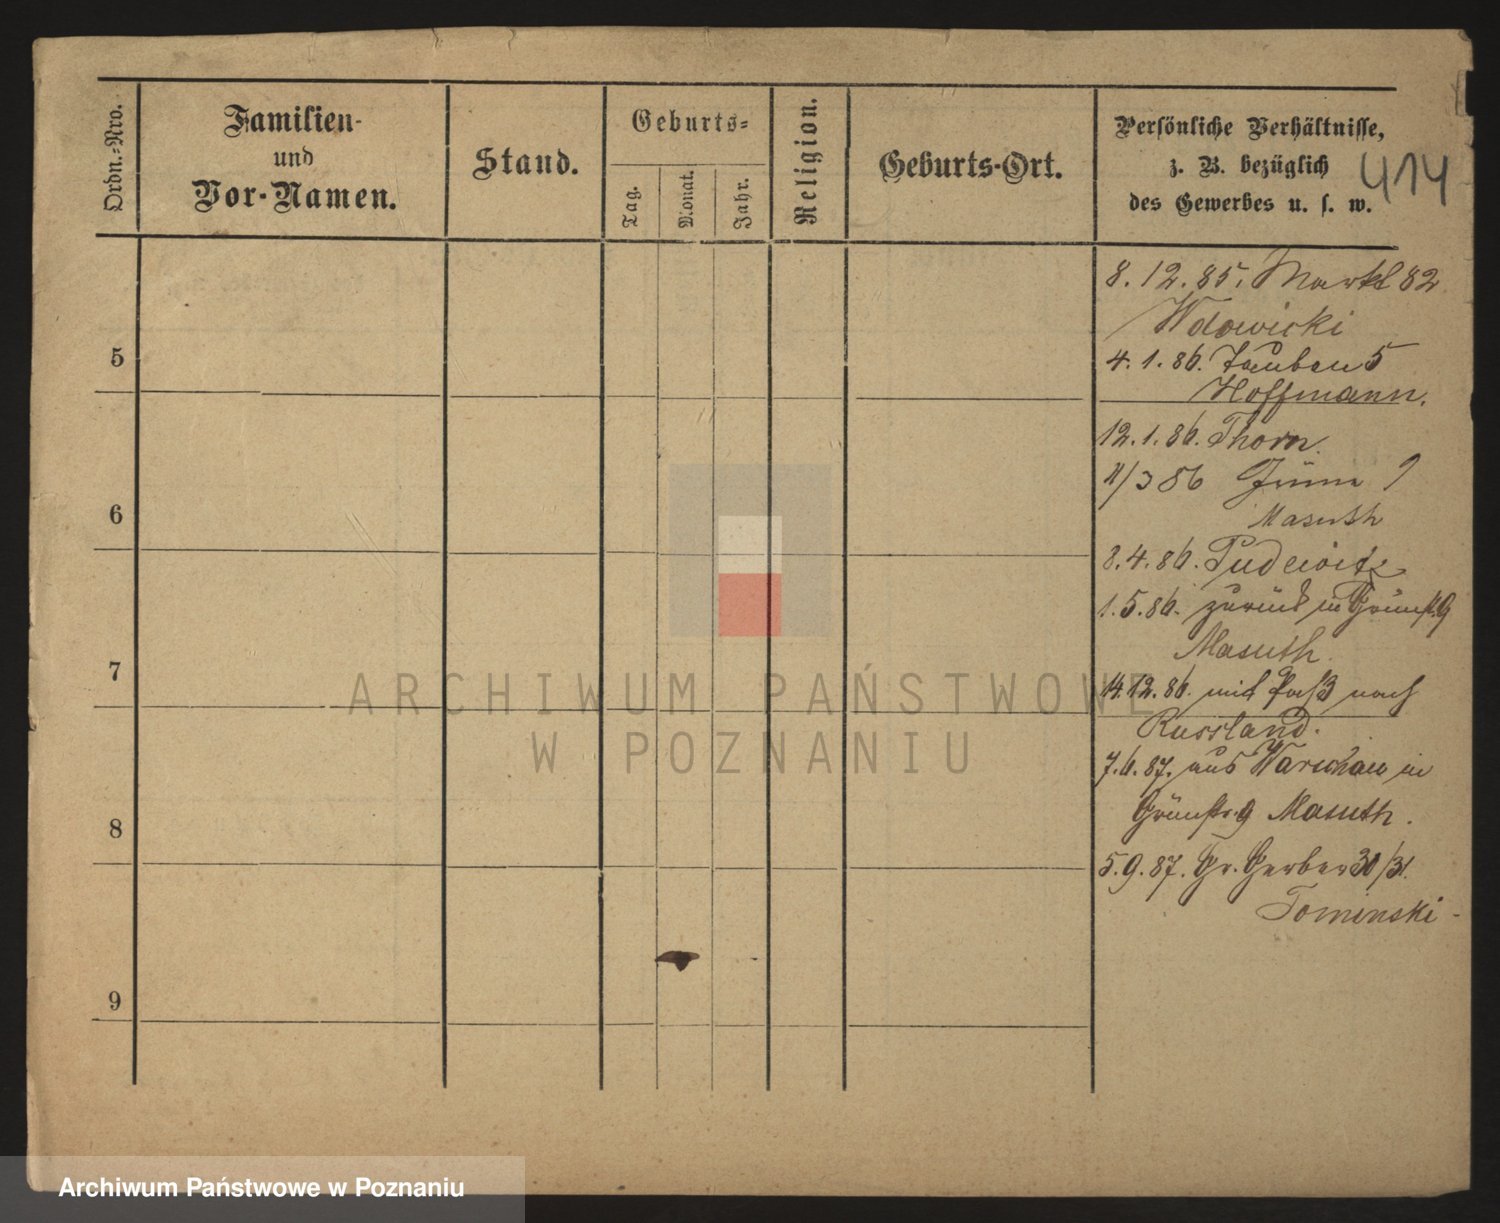 Ordn.-Nro.
Familien-
und
Vor-Namen.
Stand.
Geburts-
Tag.
Monat.
Jahr.
Religion.
Geburts-Ort.
Persönliche Verhältnisse,
z. B. bezüglich
des Gewerbes u. s. w.
414
8. 12. 85. Markt 82
Wdowicki
5
4. 1. 86. Tauben 5
Hoffmann.
12. 1. 86. Thorn.
11/3 86 9
6
Masuth
8. 4. 86. Pudewitz
1. 5. 86. zurück in Grünstr. 9
Masuth.
7
14. 12. 86. mit Paß nach
Russland.
7. 6. 87. aus Warschau in
Grünstr. 9 Masuth.
8
5. 9. 87. Gr. Gerber 30/31.
Tominski -
9
ARCHIWUM PAŃSTWOWE
W POZNANIU
Archiwum Państwowe w Poznaniu